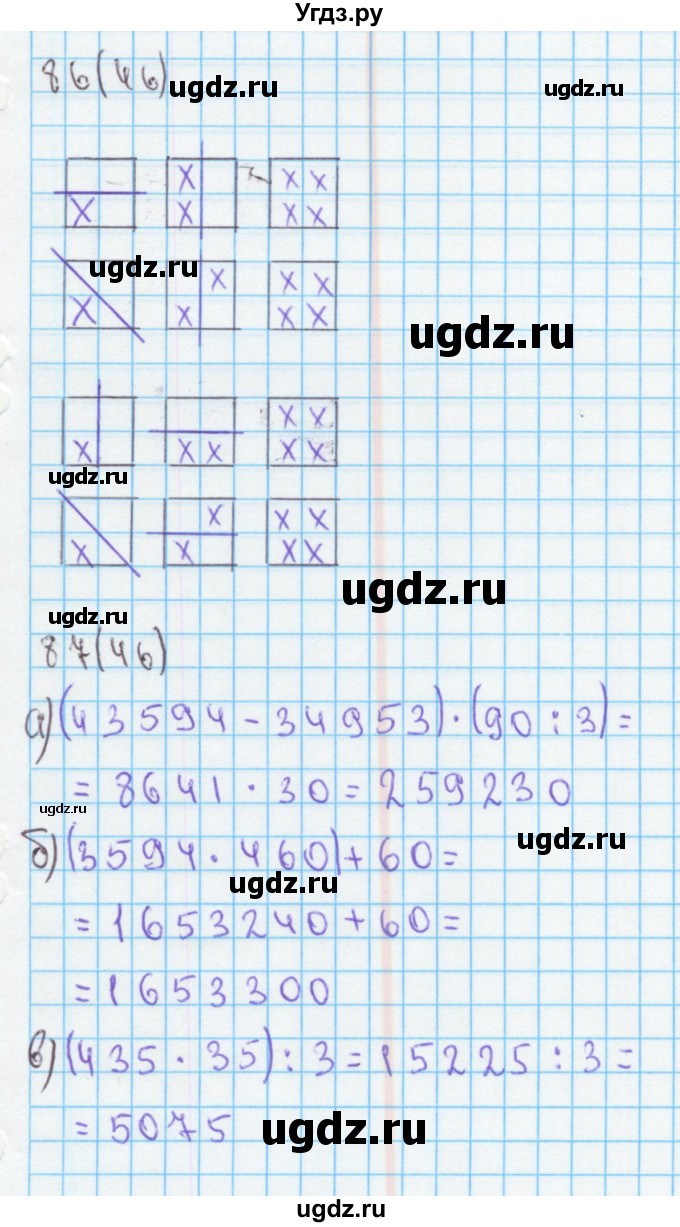 Угдз.ру
86(46) ugdz.ru ugdz.ru
X X X X X
X X X
ugdz.ru
X X X X
X X X X
ugdz.ru
X X
X X X X X
ugdz.ru
X X X
X X X X
ugdz.ru
ugdz.ru
87(46)
а) (43594-34953)·(90:3)=
=8641·30=259230
ugdz.ru
ugdz.ru
б) (3594·460)+60=
ugdz.ru
=1653240+60=
=1653300
в) (435·35):3=15225:3=
=5075 ugdz.ru
ugdz.ru